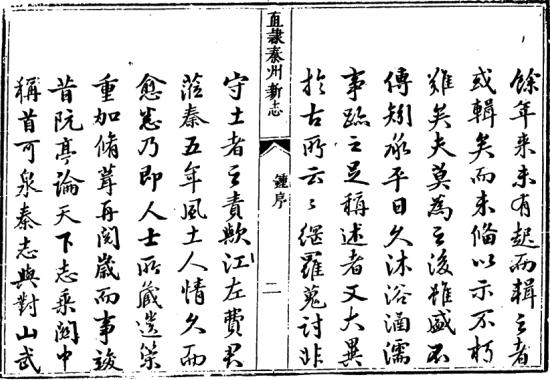 餘年來未有起而輯之者
或輯矣而未備以示不朽
難矣夫莫為之後雖盛不
傳矧承平日久沐浴涵濡
事跡之足稱述者又大異
於古所云〻網羅蒐討非
直隸秦州新志
鍾序
二
守土者之責歟江左費君
蒞秦五年風土人情久而
愈悉乃即人士所藏遺策
重加脩葺再閱歲而事竣
昔阮亭論天下志乘關中
稱首可泉秦志與對山武